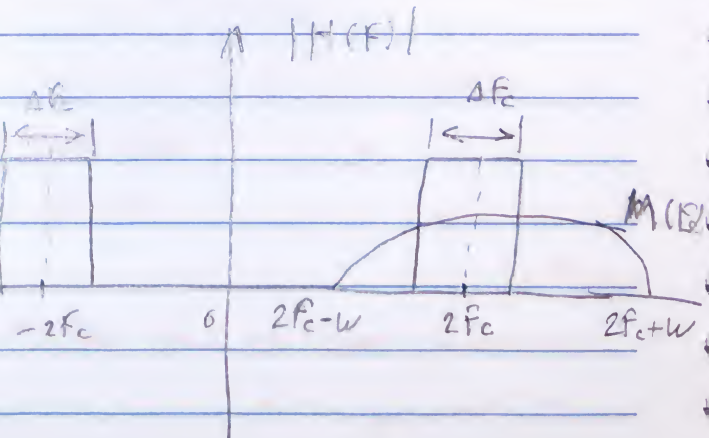 |H(F)|
ΔFc ΔFc
-2Fc 0 2Fc-W 2Fc 2Fc+W